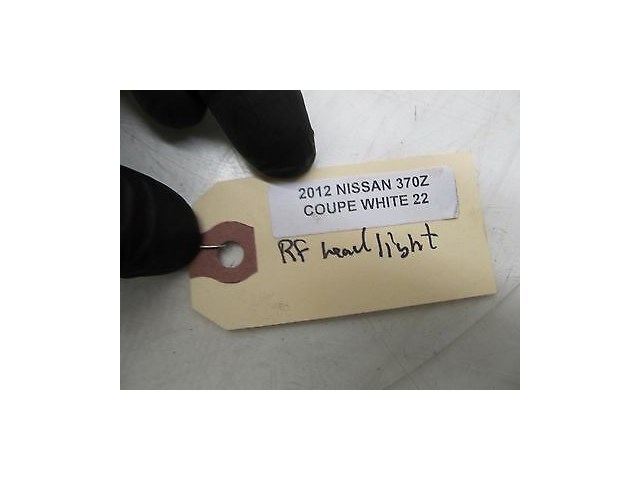 2012 NISSAN 370Z
COUPE WHITE 22
RF head light